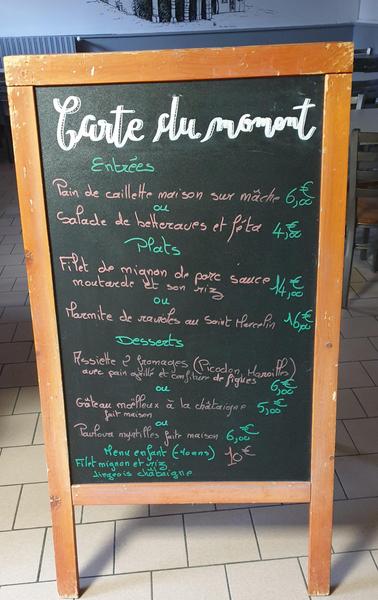 Carte du moment
Entrées
Pain de caillette maison sur mâche 6,00€
ou
Salade de betteraves et féta 4,00€
Plats
Filet de mignon de porc sauce
moutarde et son riz 14,00€
ou
Marmite de ravioles au Saint Marcelin 16,00€
Desserts
Assiette 2 fromages (Picodon, Maroilles)
avec pain grillé et confiture de figues 6,00€
ou
Gâteau moelleux à la châtaigne 5,00€
fait maison
ou
Pavlova myrtilles fait maison 6,00€
Menu enfant (-10ans) 10€
Filet mignon et riz
liegeois châtaigne